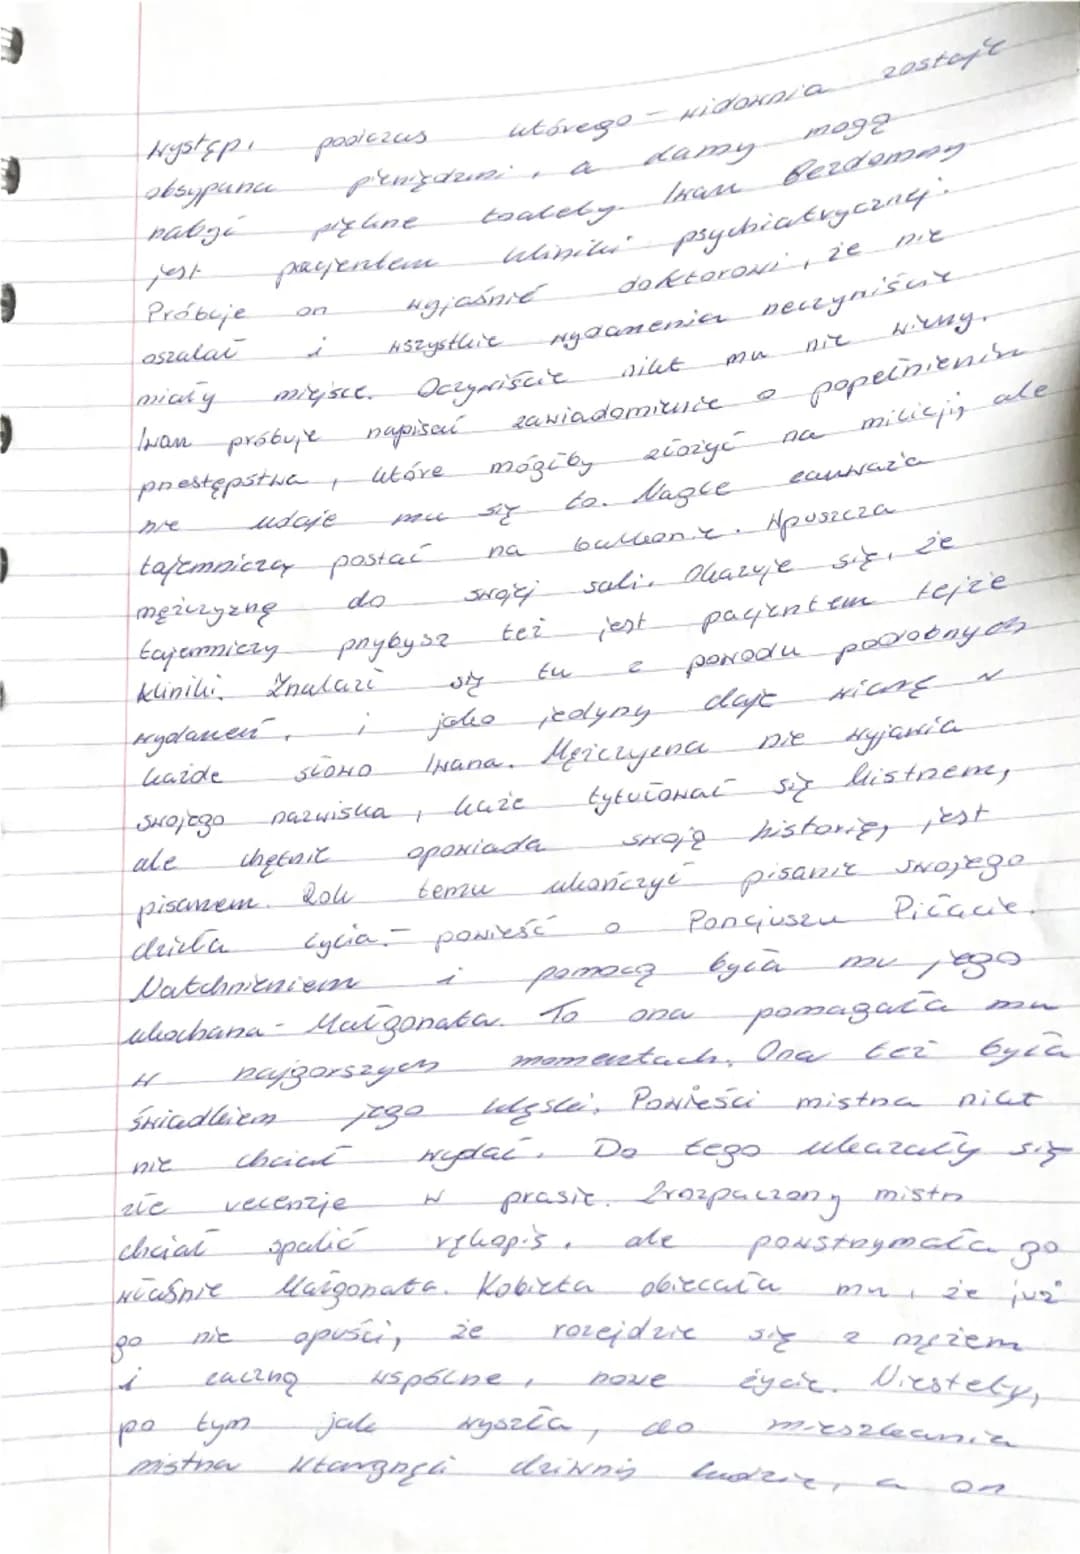 Występ, podczas którego - widownia zostaje
obsypana pieniędzmi, a damy mogą
nabyć piękne toalety. Iwan Bezdomny
jest pacjentem kliniki psychiatrycznej.
Próbuje on wyjaśnić doktorowi, że nie
oszalał i wszystkie wydarzenia rzeczywiście
miały miejsce. Oczywiście nikt mu nie wierzy.
Iwan próbuje napisać zawiadomienie o popełnieniu
przestępstwa, które mógłby złożyć na milicji, ale
nie udaje mu się to. Nagle zauważa
tajemniczą postać na balkonie. Wpuszcza
mężczyznę do swojej sali. Okazuje się, że
tajemniczy przybysz też jest pacjentem tejże
kliniki. Znalazł się tu z powodu podobnych
wydarzeń, i jako jedyny daje wiarę w
każde słowo Iwana. Mężczyzna nie wyjawia
swojego nazwiska, każe tytułować się Mistrzem,
ale chętnie opowiada swoją historię, jest
pisarzem. Rok temu ukończył pisanie swojego
dzieła życia - powieść o Poncjuszu Piłacie.
Natchnieniem i pomocą była mu jego
ukochana - Małgorzata. To ona pomagała mu
w najgorszych momentach. Ona też była
świadkiem jego klęski. Powieści mistrza nikt
nie chciał wydać. Do tego ukazały się
złe recenzje w prasie. Zrozpaczony mistrz
chciał spalić rękopis, ale powstrzymała go
właśnie Małgorzata. Kobieta obiecała mu, że już
go nie opuści, że rozejdzie się z mężem
i zaczną wspólne, nowe życie. Niestety,
po tym jak wyszła, do mieszkania
mistrza wtargnęli dziwni ludzie, a on